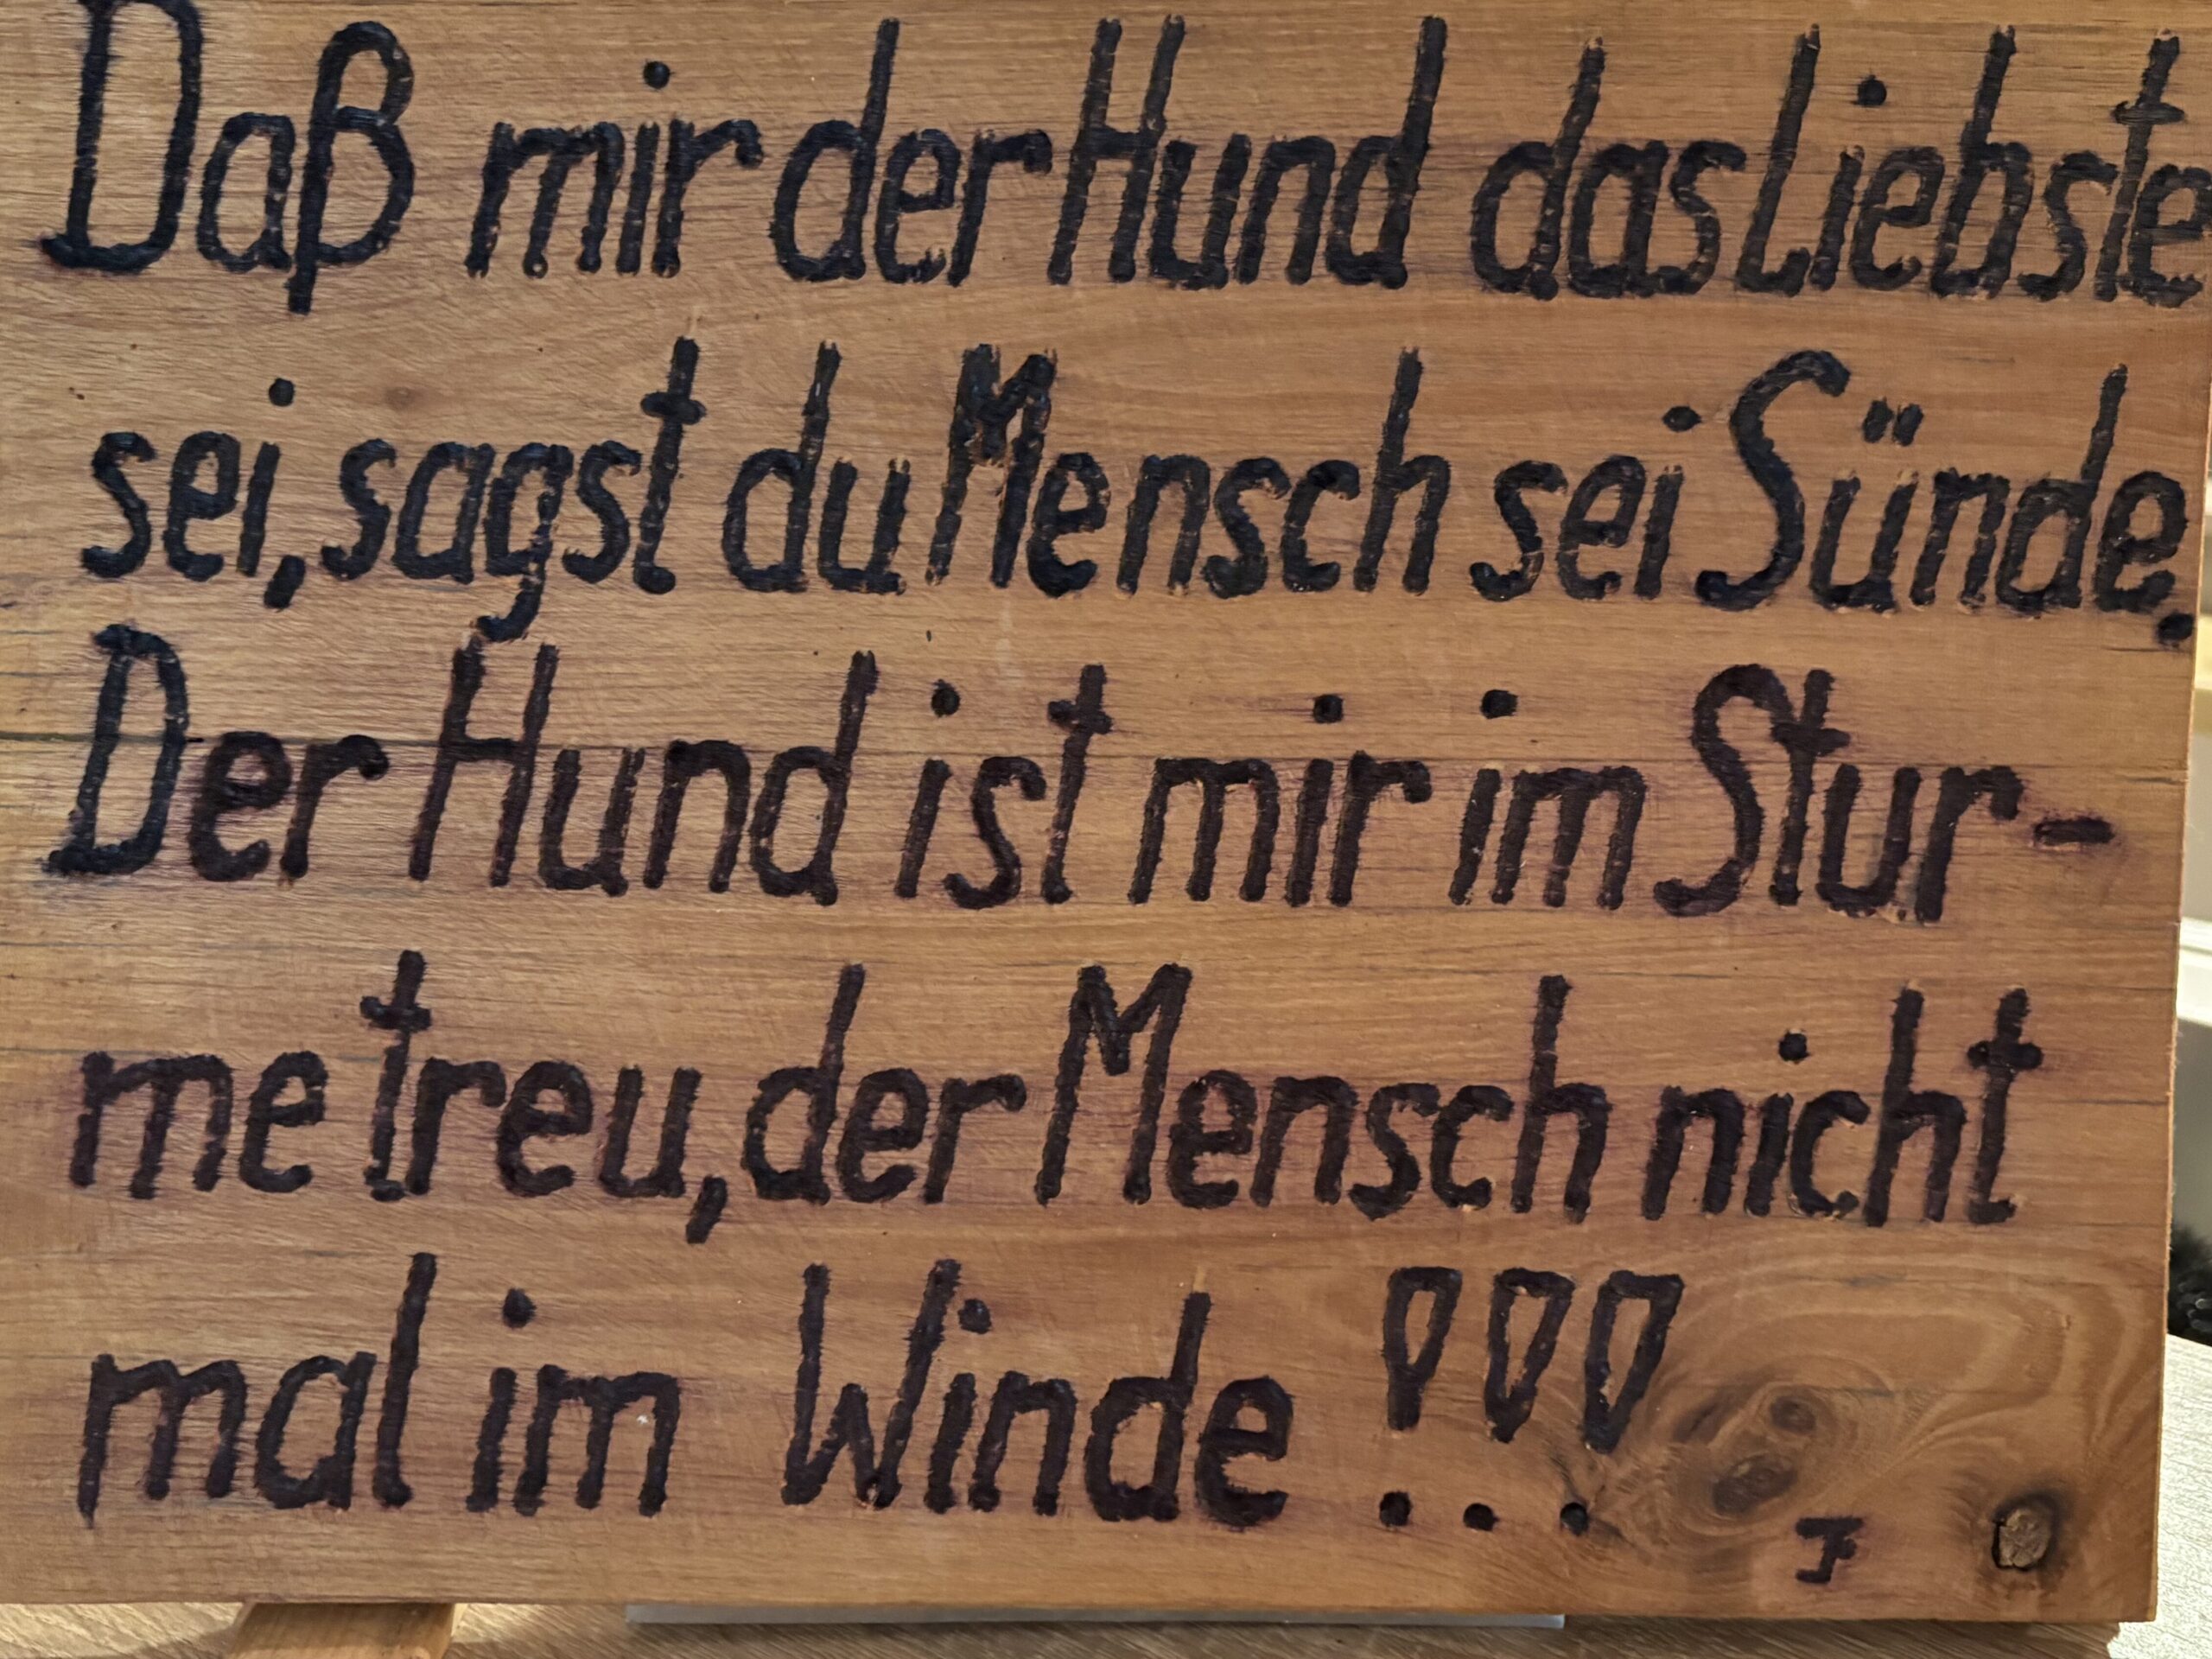 Daß mir der Hund das Liebste
sei, sagst du Mensch sei Sünde.
Der Hund ist mir im Stur-
me treu, der Mensch nicht
mal im Winde !!!